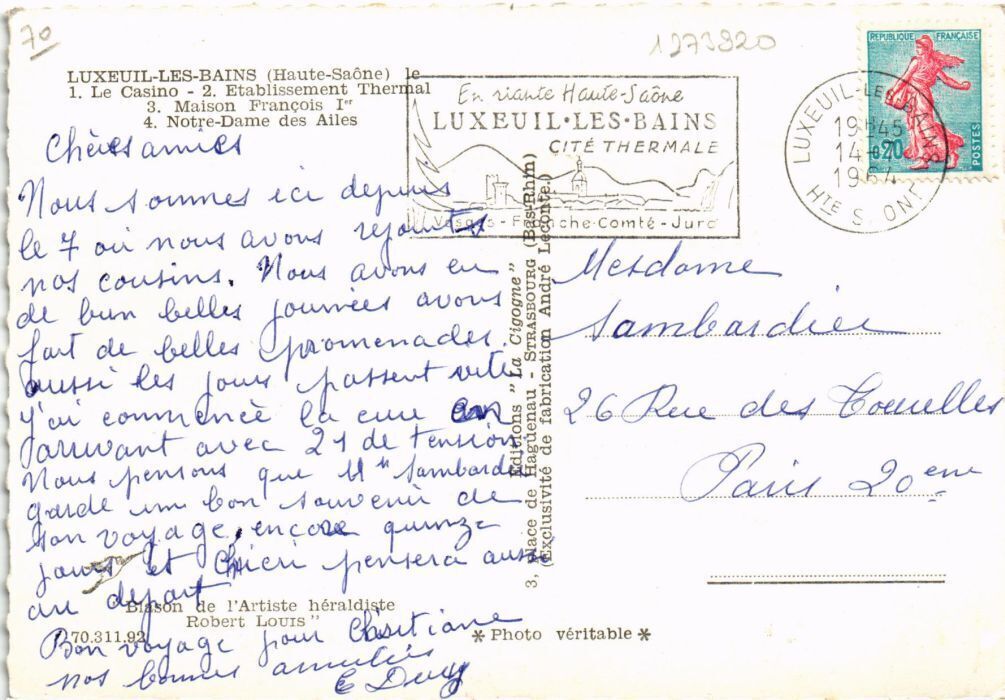 70
1273920
LUXEUIL-LES-BAINS (Haute-Saône) le
1. Le Casino - 2. Etablissement Thermal
3. Maison François Ier
4. Notre-Dame des Ailes
En riante Haute-Saône
LUXEUIL·LES·BAINS
CITÉ THERMALE
Vosges-Franche-Comté-Jura
LUXEUIL-LES-BAINS
19H45
14-
1964
HTE SAONE
REPUBLIQUE FRANÇAISE
0,20
POSTES
Chères amies
Nous sommes ici depuis
le 7 où nous avons rejoint
nos cousins. Nous avons eu
de bien belles journées avons
fait de belles promenades.
aussi les jours passent vite
J'ai commencé la cure en
arrivant avec 21 de tension
Nous pensons que Mr Sambardier
garde un bon souvenir de
son voyage, encore quinze
jours et pensera aussi
au départ
Bon voyage pour Christiane
nos bonnes amitiés
Mesdame
Sambardier
26 Rue des Tourelles
Paris 20eme
Editions "La Cigogne"
3, place de Haguenau - STRASBOURG (Bas-Rhin)
(Exclusivité de fabrication André Leconte.)
Blason de l'Artiste héraldiste
Robert Louis"
70.311.92
* Photo véritable *